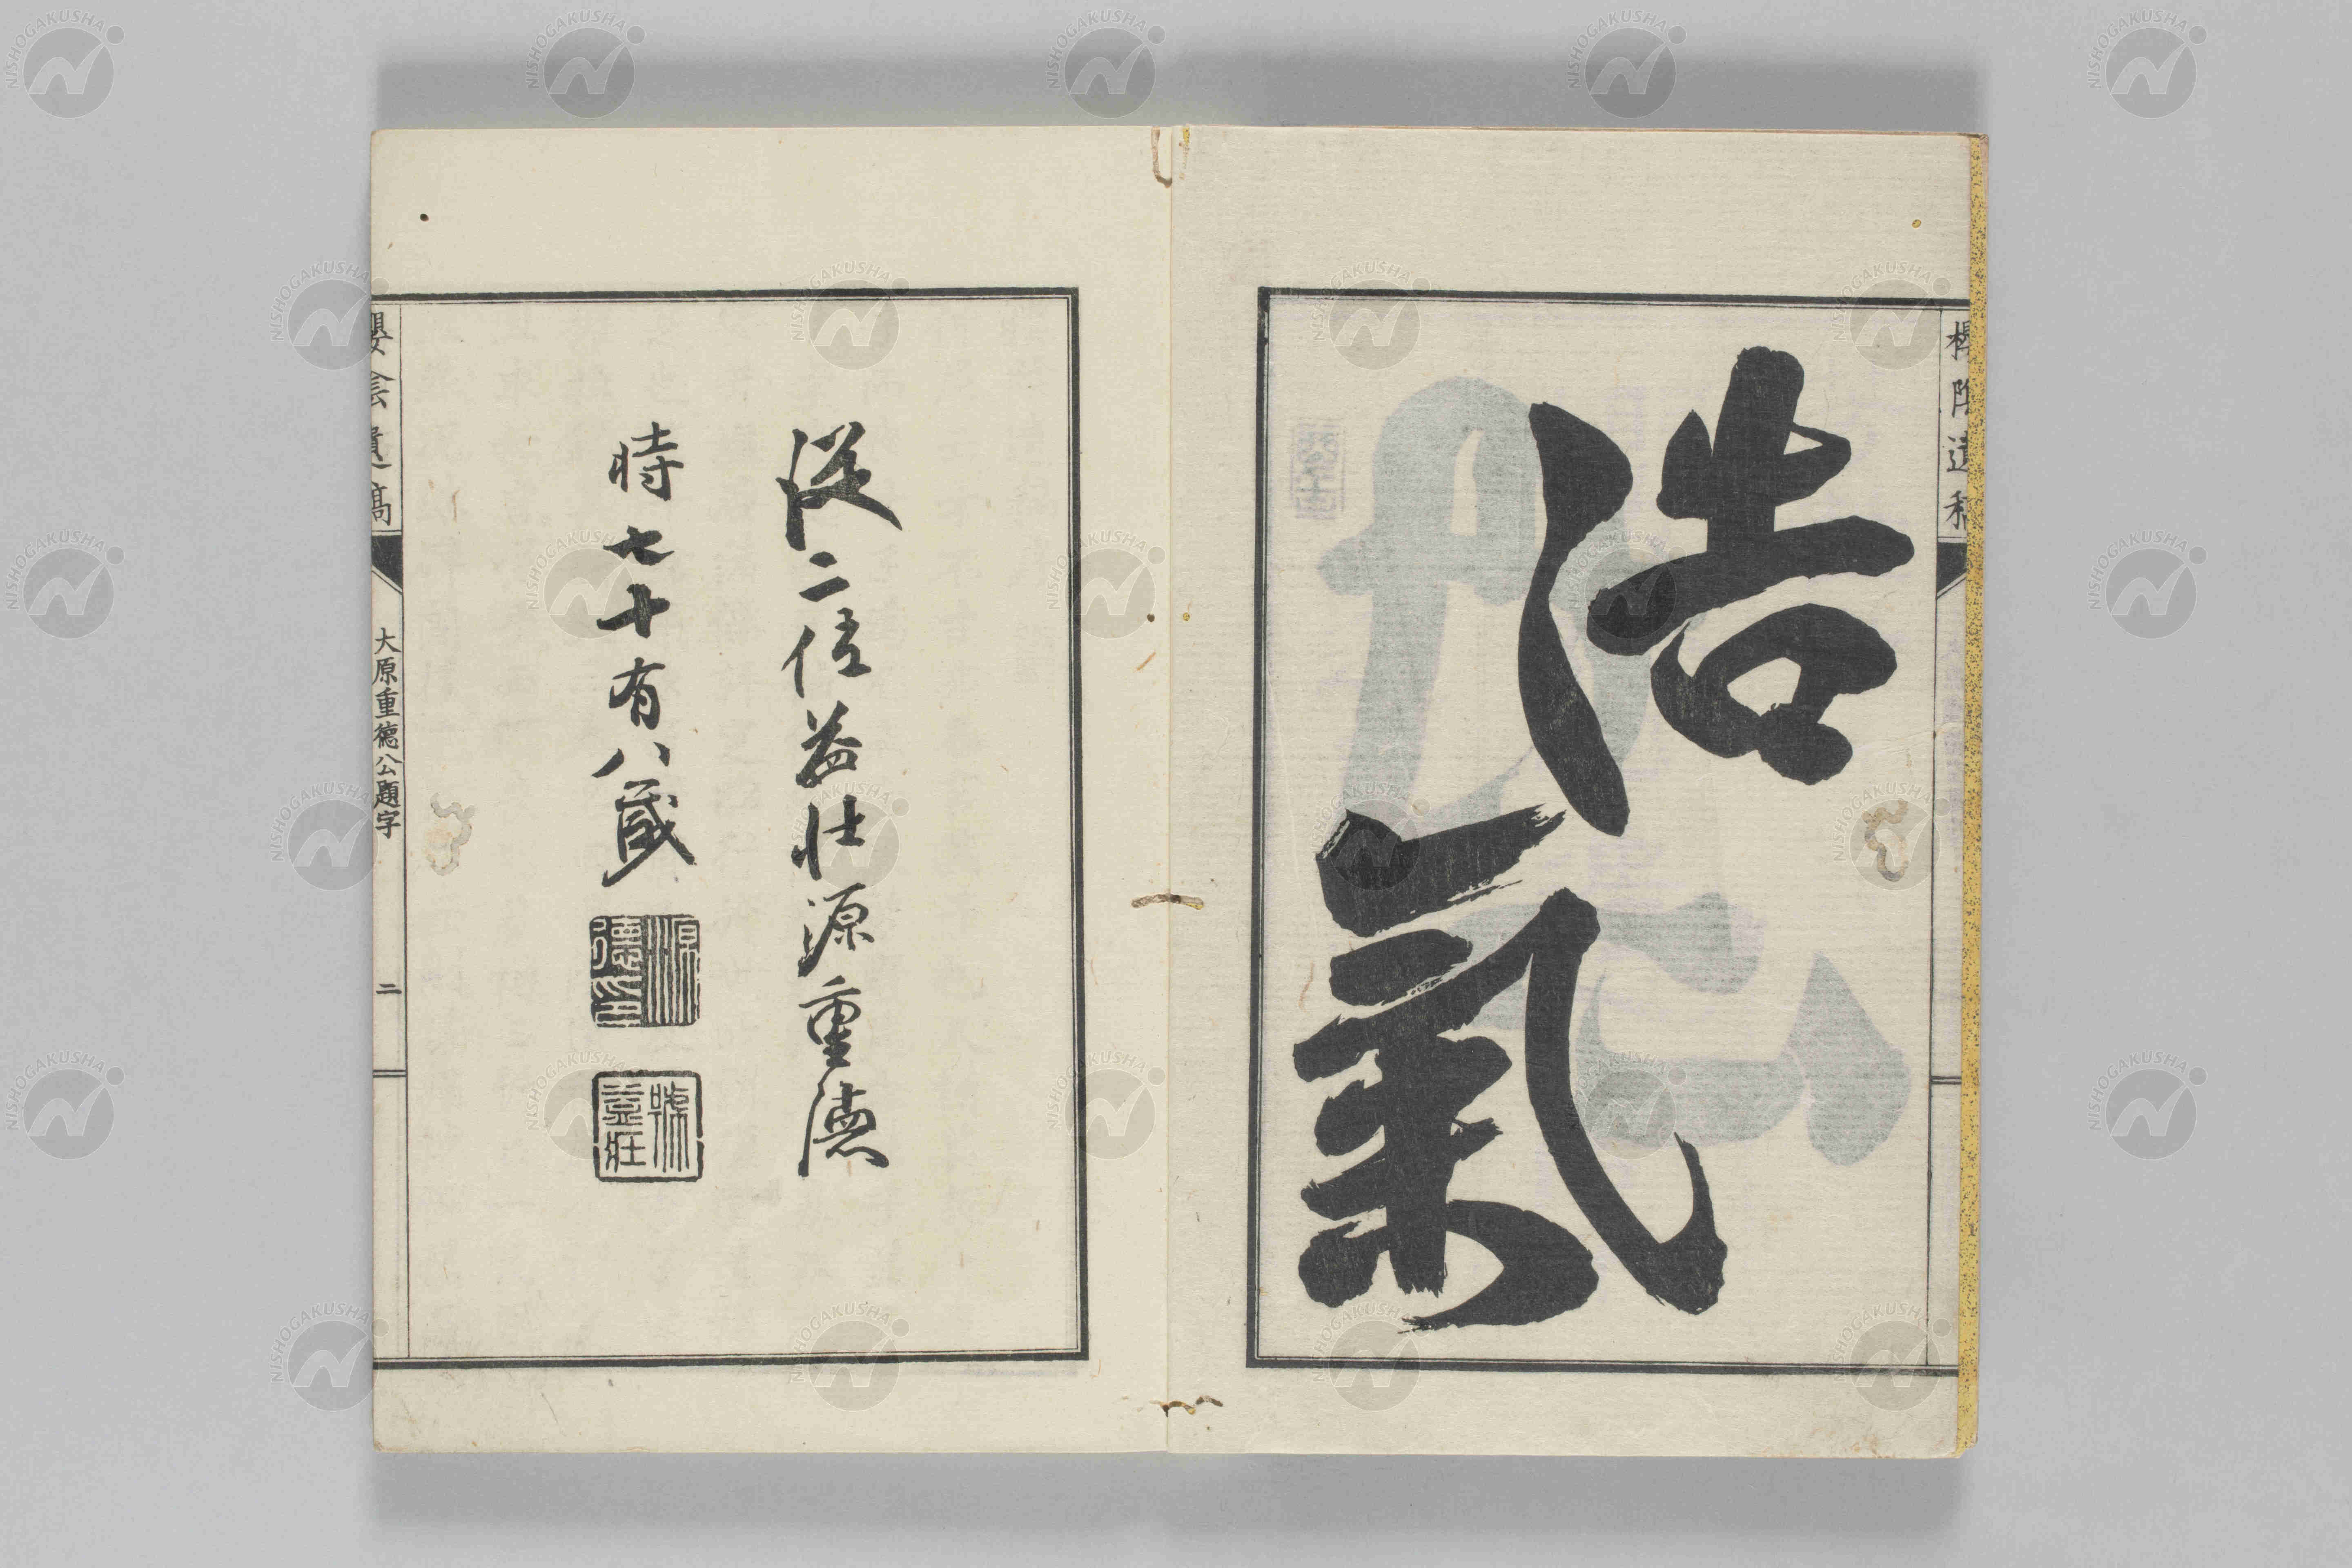 浩
氣
櫻陰遺稿
從二位益壯源重德
時七十有八歳
源重德印
號益壯
櫻陰遺稿
大原重德公題字
二
NISHOGAKUSHA